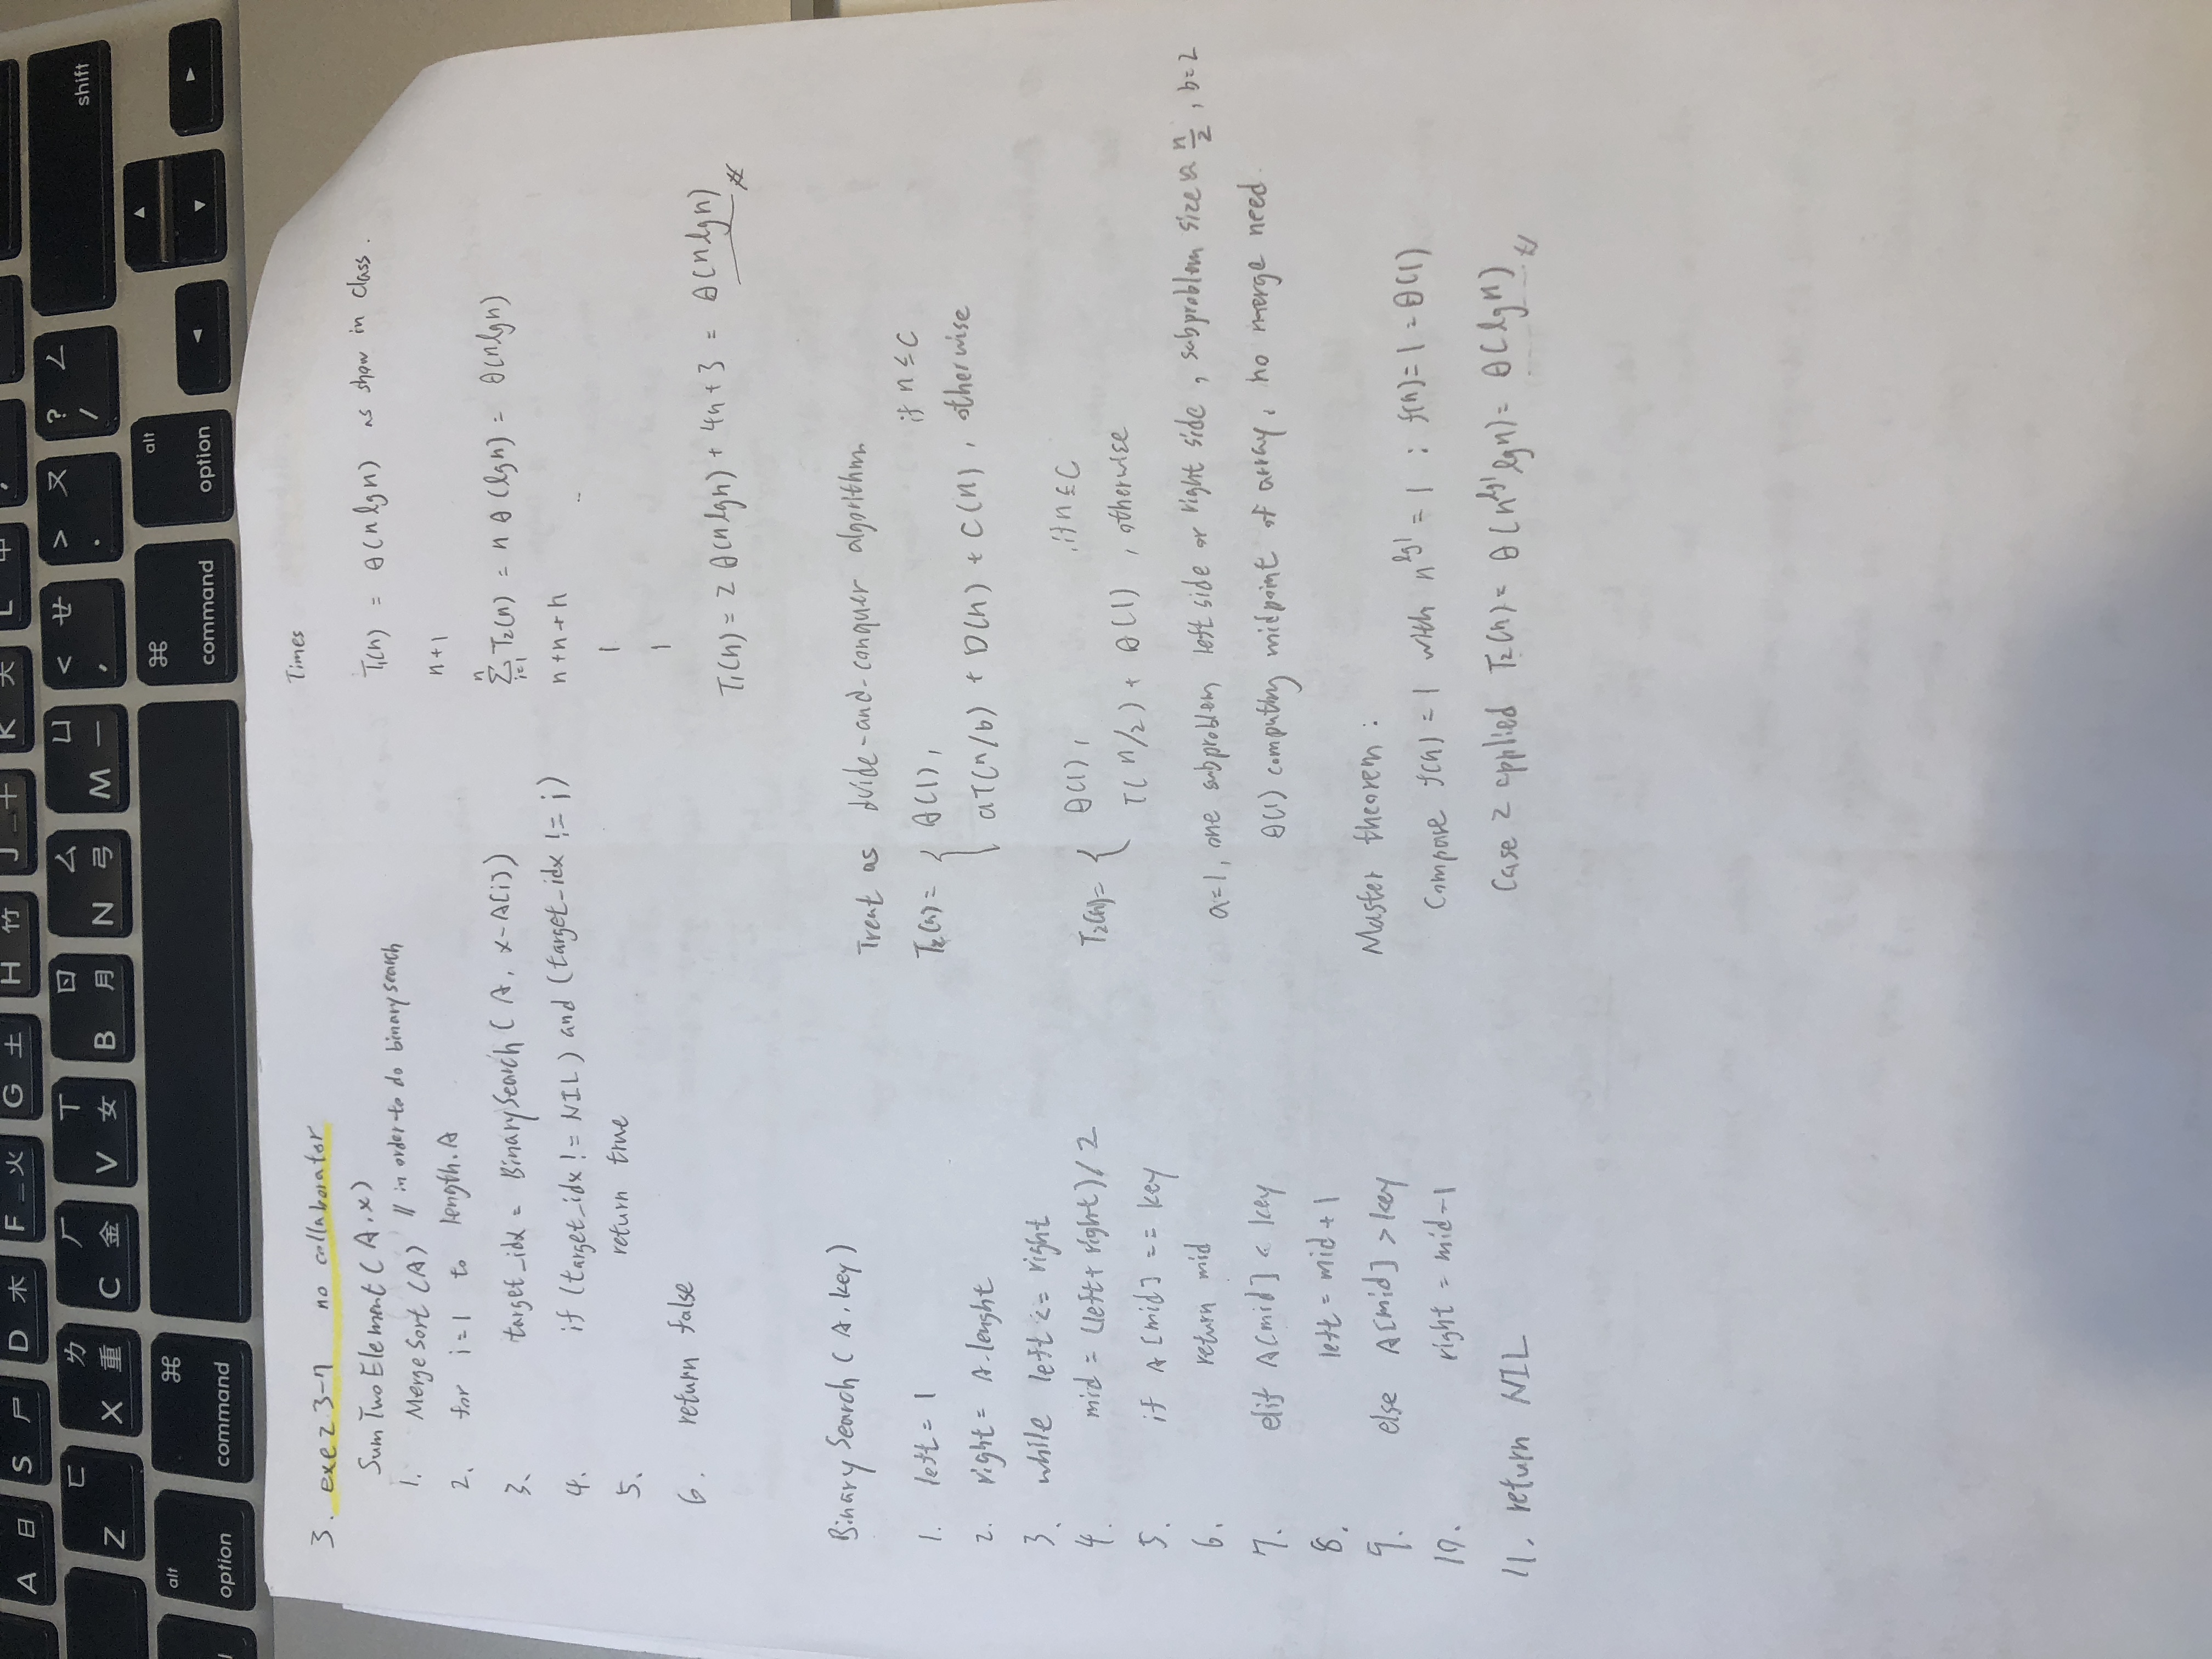 A 日 S ㄕ 尸 D 木 F 火 G 土 H 竹 J 十 K 大 L 中
Z ㄈ X ㄌ 重 C ㄏ 金 V ㄒ 女 B ㄖ 月 N ㄙ 弓 M ㄩ 一 < ㄝ , > ㄡ . ? ㄥ / shift
alt option ⌘ command ⌘ command alt option ◄ ▲ ▼ ►
Times
3. exe 2 3-7 no collaborator
SumTwoElement(A, x)
1. MergeSort(A) // in order to do binary search
T₁(n) = θ(n lg n) as show in class.
2. for i=1 to length.A
n+1
3. target_idx = BinarySearch(A, x-A[i])
n Σ i=1 T₂(n) = n θ(lg n) = θ(n lg n)
4. if (target_idx != NIL) and (target_idx != i)
n+n+n
5. return true
1
6. return false
1
T₁(n) = 2 θ(n lg n) + 4n+3 = θ(n lg n) #
Binary Search(A, key)
1. left = 1
2. right = A.lenght
3. while left <= right
4. mid = (left+right)/2
5. if A[mid] == key
6. return mid
7. elif A[mid] < key
8. left = mid+1
9. else A[mid] > key
10. right = mid-1
11. return NIL
Treat as dvide-and-conquer algorithm
T₂(n) = { θ(1), if n ≤ c
aT(n/b) + D(n) + C(n), otherwise
T₂(n) = { θ(1), if n ≤ c
T(n/2) + θ(1), otherwise
a=1, one subproblem left side or right side, subproblem size n/2, b=2
θ(1) computing midpoint of array, no merge need.
Master theorem:
Compare f(n) = 1 with n^lg1 = 1 : f(n) = 1 = θ(1)
Case 2 applied T₂(n) = θ(n^lg1 lg n) = θ(lg n) #